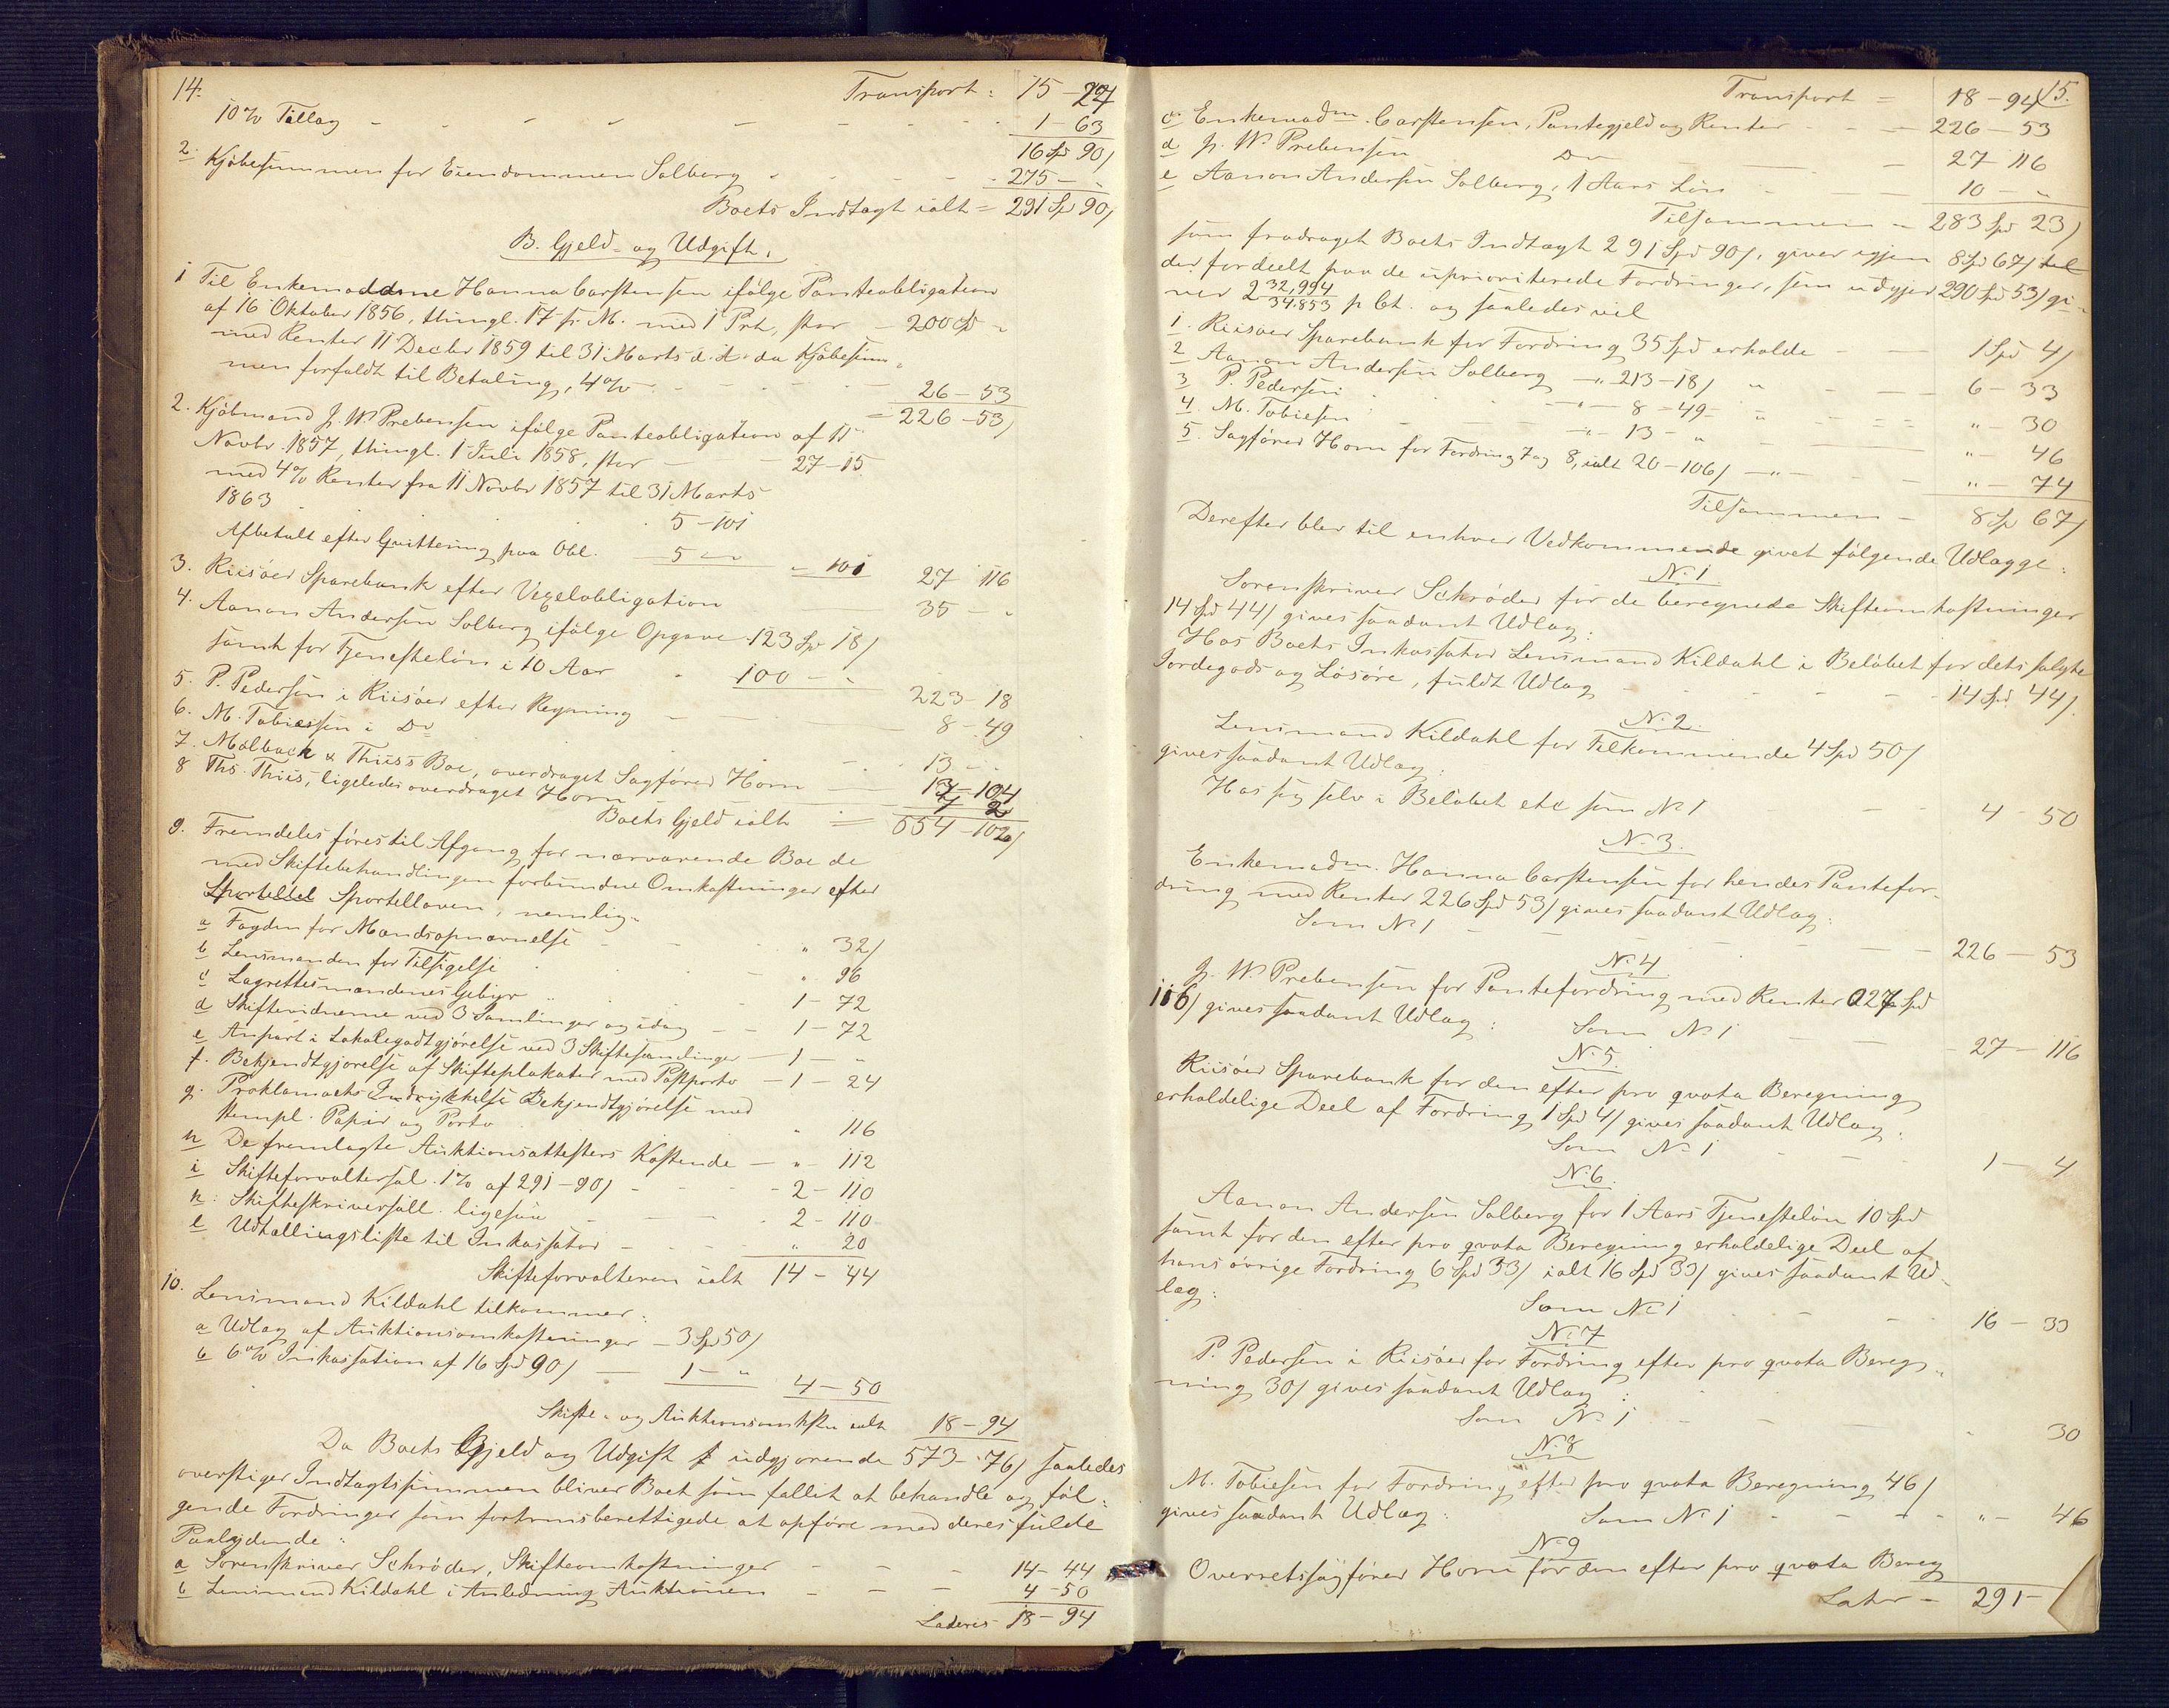 14.
Transport: 15 - 27
10% Tillæg - - - - - - 1 - 63
16 Spd 90/
2. Kjøbesummen for Eiendommen Solberg - - - 275 - "
Boets Indtægt ialt = 291 Spd 90/
B. Gjeld- og Udgift.
1 Til Enkemadme Hanna Carstensen ifølge Panteobligation
af 16 Oktober 1856, thingl. 17 s. M. med 1 Prt, stor - 200 Spd "
med Renter 11 Decbr 1859 til 31 Marts d. A. da Kjøbesum-
men forfaldt til Betaling, 4% - - - 26 - 53
= 226 - 53/
2. Kjøbmand J. W. Prebensen ifølge Panteobligation af 11
Novbr 1857, thingl. 1 Juli 1858, stor - - 27 - 15
med 4% Renter fra 11 Novbr 1857 til 31 Marts
1863 - - 5 - 101
Afbetalt efter Qvittering paa Obl. - 5 - " " 101 27 116
3. Riisøer Sparebank efter Vexelobligation 35 - "
4. Aanon Andersen Solberg ifølge Opgave 123 Spd 18/
samt for Tjenesteløn i 10 Aar - 100 - " 223 - 18
5. P. Pedersen i Riisøer efter Regning - - 8 - 49
6. M. Tobiesen i Do - - 13 - "
7. Mølback & Thiis's Boe, overdraget Sagfører Horn - 13 - 104
8 Ths. Thiis, ligeledes overdraget Horn - 7 2
Boets Gjeld ialt = 554 - 102/
9. Fremdeles føres til Afgang for nærværende Boe de
med Skiftebehandlingen forbundne Omkostninger efter
Sportellovn, nemlig:
a Fogden for Mandsopnævnelse - " 32/
b Lensmanden for Tilsigelse - " 96
c Lagrettesmændenes Gebyr - 1 - 72
d Skiftevidnerne ved 3 Samlinger og idag - - 1 - 72
e Anpart i Lokalegodtgjørelse ved 3 Skiftesamlinger - 1 - "
f. Bekjendtgjørelse af Skifteplakater med Postporto - 1 - 24
g. Proklamaets Indrykkelse Bekjendtgjørelse med
stempl. Papir og Porto - " 116
h De fremlagte Auktionsattesters Kostende - " - 112
i Skifteforvaltersal. 1% af 291 - 90/ - - 2 - 110
k: Skifteskriversall. ligesaa - - 2 - 110
l Udtællingsliste til Inkassator - - " 20
Skifteforvalteren ialt 14 - 44
10. Lensmand Kildahl tilkommer:
a Udlæg af Auktionsomkostninger - 3 Spd 50/
b 6% Inkassation af 16 Spd 90/ - 1 - " 4 - 50
Skifte- og Auktionsomkstn ialt 18 - 94
Da Boets Gjeld og Udgift udgjørende 573 - 76/ saaledes
overstiger Indtægtssummen bliver Boet som fallit at behandle og føl-
gende Fordringer som fortrinsberettigede at opføre med deres fulde
Paalydende:
a Sorenskriver Schrøder, Skifteomkostninger - - - 14 - 44
b Lensmand Kildahl i Anledning Auktionen - - - 4 - 50
Lateris 18 - 94
15.
Transport = 18 - 94
c. Enkemadm. Carstensen, Pantegjeld og Renter - - - 226 - 53
d J. W. Prebensen Do - - 27 116
e Aanon Andersen Solberg, 1 Aars Løn - - 10 - "
Tilsammen = 283 Spd 23/
som fradraget Boets Indtægt 291 Spd 90/, giver igjen 8 Spd 67/
der fordeelt paa de uprioriterede Fordringer, som udgjør 290 Spd 53/ gi-
ver 2 32,994/34,853 p Ct. og saaledes vil
1. Riisøer Sparebank for Fordring 35 Spd erholde - - 1 Spd 4/
2 Aanon Andersen Solberg -"- 213 - 18/ " - 6 - 33
3 P. Pedersen - - -"- 8 - 49 - " - " - 30
4. M. Tobiesen - - -"- 13 - " - " - 46
5. Sagfører Horn for Fordring 7 og 8, ialt 20 - 106/ -"- - " - 74
Tilsammen - 8 Sp 67/
Derefter blev til enhver Vedkommende givet følgende Udlægge:
No 1
Sorenskriver Schrøder for de beregnede Skifteomkostninger
14 Spd 44/ gives saadant Udlæg:
Hos Boets Inkassator Lensmand Kildahl i Beløbet for dets solgte
Jordegods og Løsøre, fuldt Udlæg - - - 14 Spd 44/.
No 2.
Lensmand Kildahl for Tilkommende 4 Spd 50/
gives saadant Udlæg:
Hos sig selv i Beløbet etc som No 1 - - 4 - 50
No 3.
Enkemadm. Hanna Carstensen for hendes Pantefor-
dring med Renter 226 Spd 53/ gives saadant Udlæg:
Som No 1 - - - 226 - 53
No 4
J. W. Prebensen for Pantefordring med Renter 27 Spd
116/ gives saadant Udlæg: Som No 1 - - 27 - 116
No 5.
Riisøer Sparebank for den efter pro qvota Beregning
erholdelige Deel af Fordring 1 Spd 4/ gives saadant Udlæg:
Som No 1 - - 1 - 4
No 6.
Aanon Andersen Solberg for 1 Aars Tjenesteløn 10 Spd
samt for den efter pro qvota Beregning erholdelige Deel af
hans øvrige Fordring 6 Spd 33/ ialt 16 Spd 33/ gives saadant Ud-
læg: Som No 1 - - 16 - 33
No 7
P. Pedersen i Riisøer for Fordring efter pro qvota Bereg-
ning 30/ gives saadant Udlæg:
Som No 1 - - - 30
No 8
M. Tobiesen for Fordring efter pro qvota Beregning 46/
gives saadant Udlæg: Som No 1 - - - " - 46
No 9
Overretssagfører Horn for den efter pro qvota Bereg
Later - 291 -